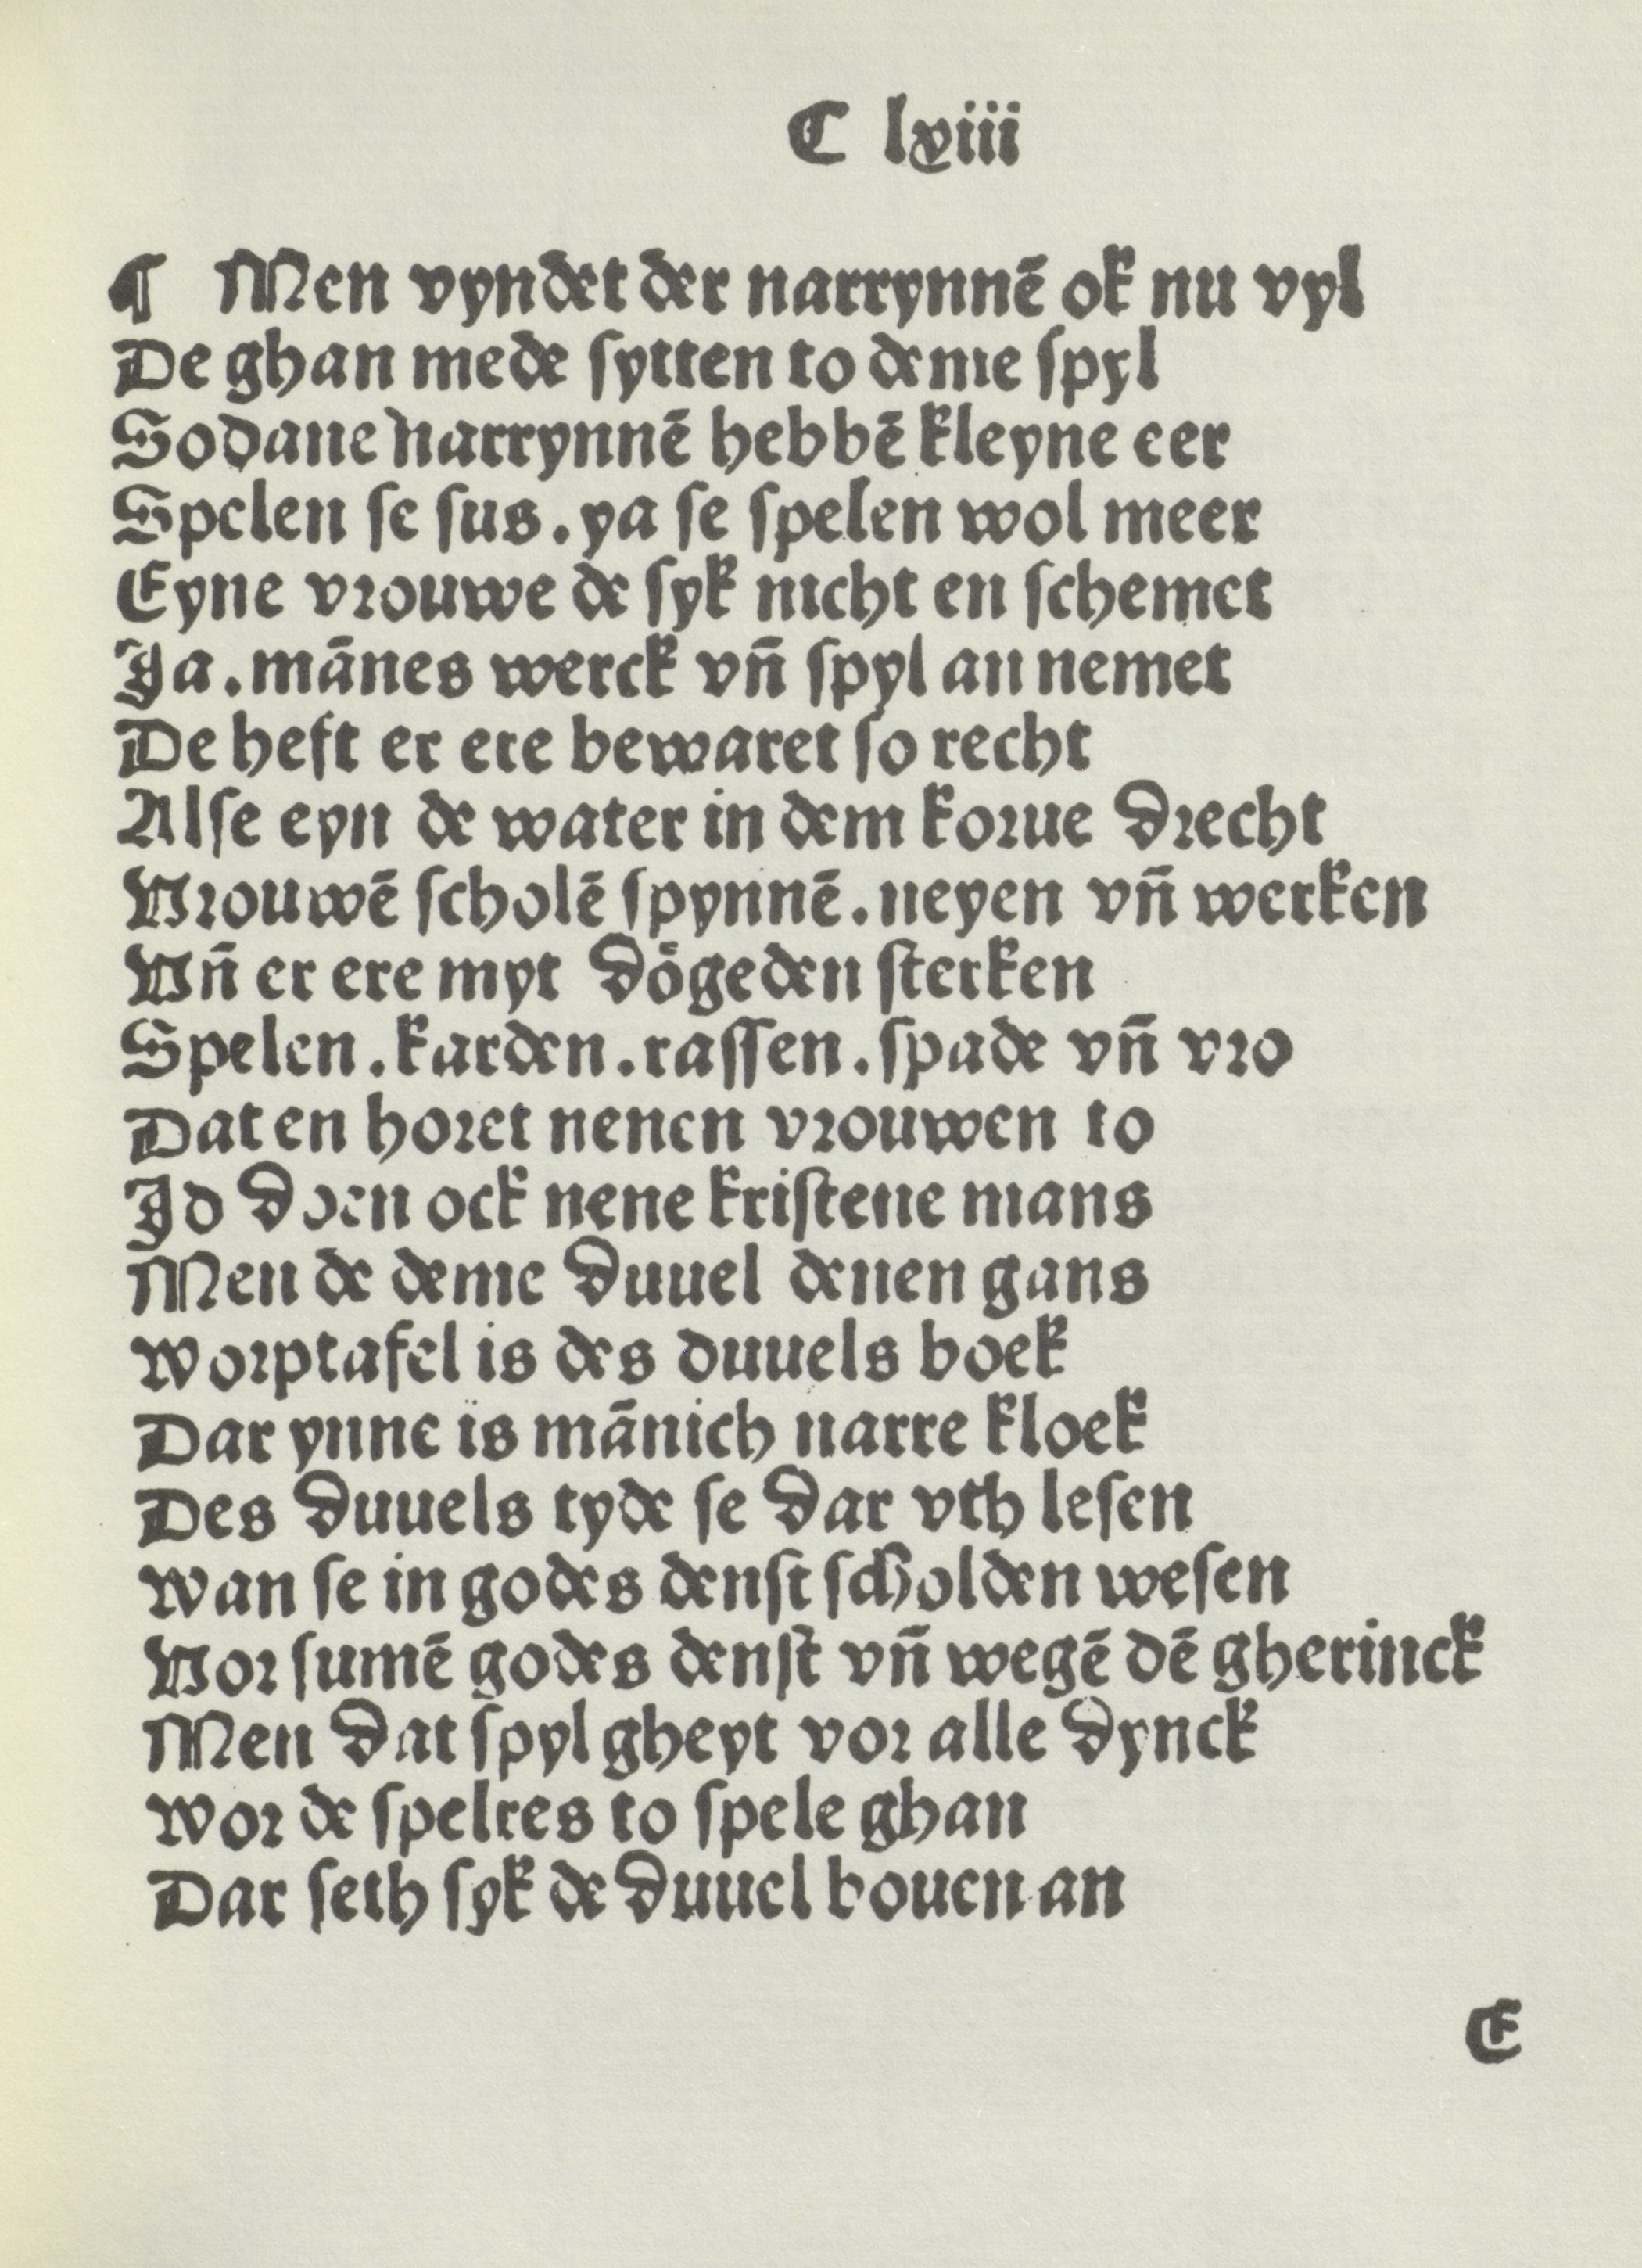 C lxiii
¶ Men vyndet der narrynnē ok nu vyl
De ghan mede ſytten to deme ſpyl
Sodane narrynnē hebbē kleyne eer
Spelen ſe ſus. ya ſe ſpelen wol meer
Eyne vrouwe de ſyk nicht en ſchemet
Ja. mānes werck vn̄ ſpyl an nemet
De heft er ere bewaret ſo recht
Alſe eyn de water in dem korue drecht
Vrouwē ſcholē ſpynnē. neyen vn̄ werken
Vn̄ er ere myt doͤgeden ſterken
Spelen. karden. raſſen. ſpade vn̄ vro
Dat en horet nenen vrouwen to
Jd doen ock nene kriſtene mans
Men de deme duuel denen gans
worptafel is des duuels boek
Dar ynne is mānich narre kloek
Des duuels tyde ſe dar vth leſen
wan ſe in godes denſt ſcholden weſen
Vor ſumē godes denſt vn̄ wegē dē gherinck
Men dat ſpyl gheyt vor alle dynck
wor de ſpelres to ſpele ghan
Dar ſeth ſyk de duuel bouen an
E